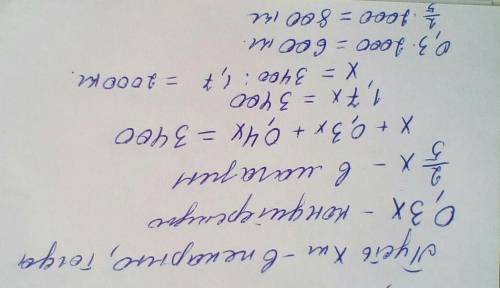 Пусть x кг - в пекарню, тогда
0,3x - кондитерскую
2/5 x - в магазин
x + 0,3x + 0,4x = 3400
1,7x = 3400
x = 3400 : 1,7 = 2000 кг.
0,3 · 2000 = 600 кг.
2/5 · 2000 = 800 кг